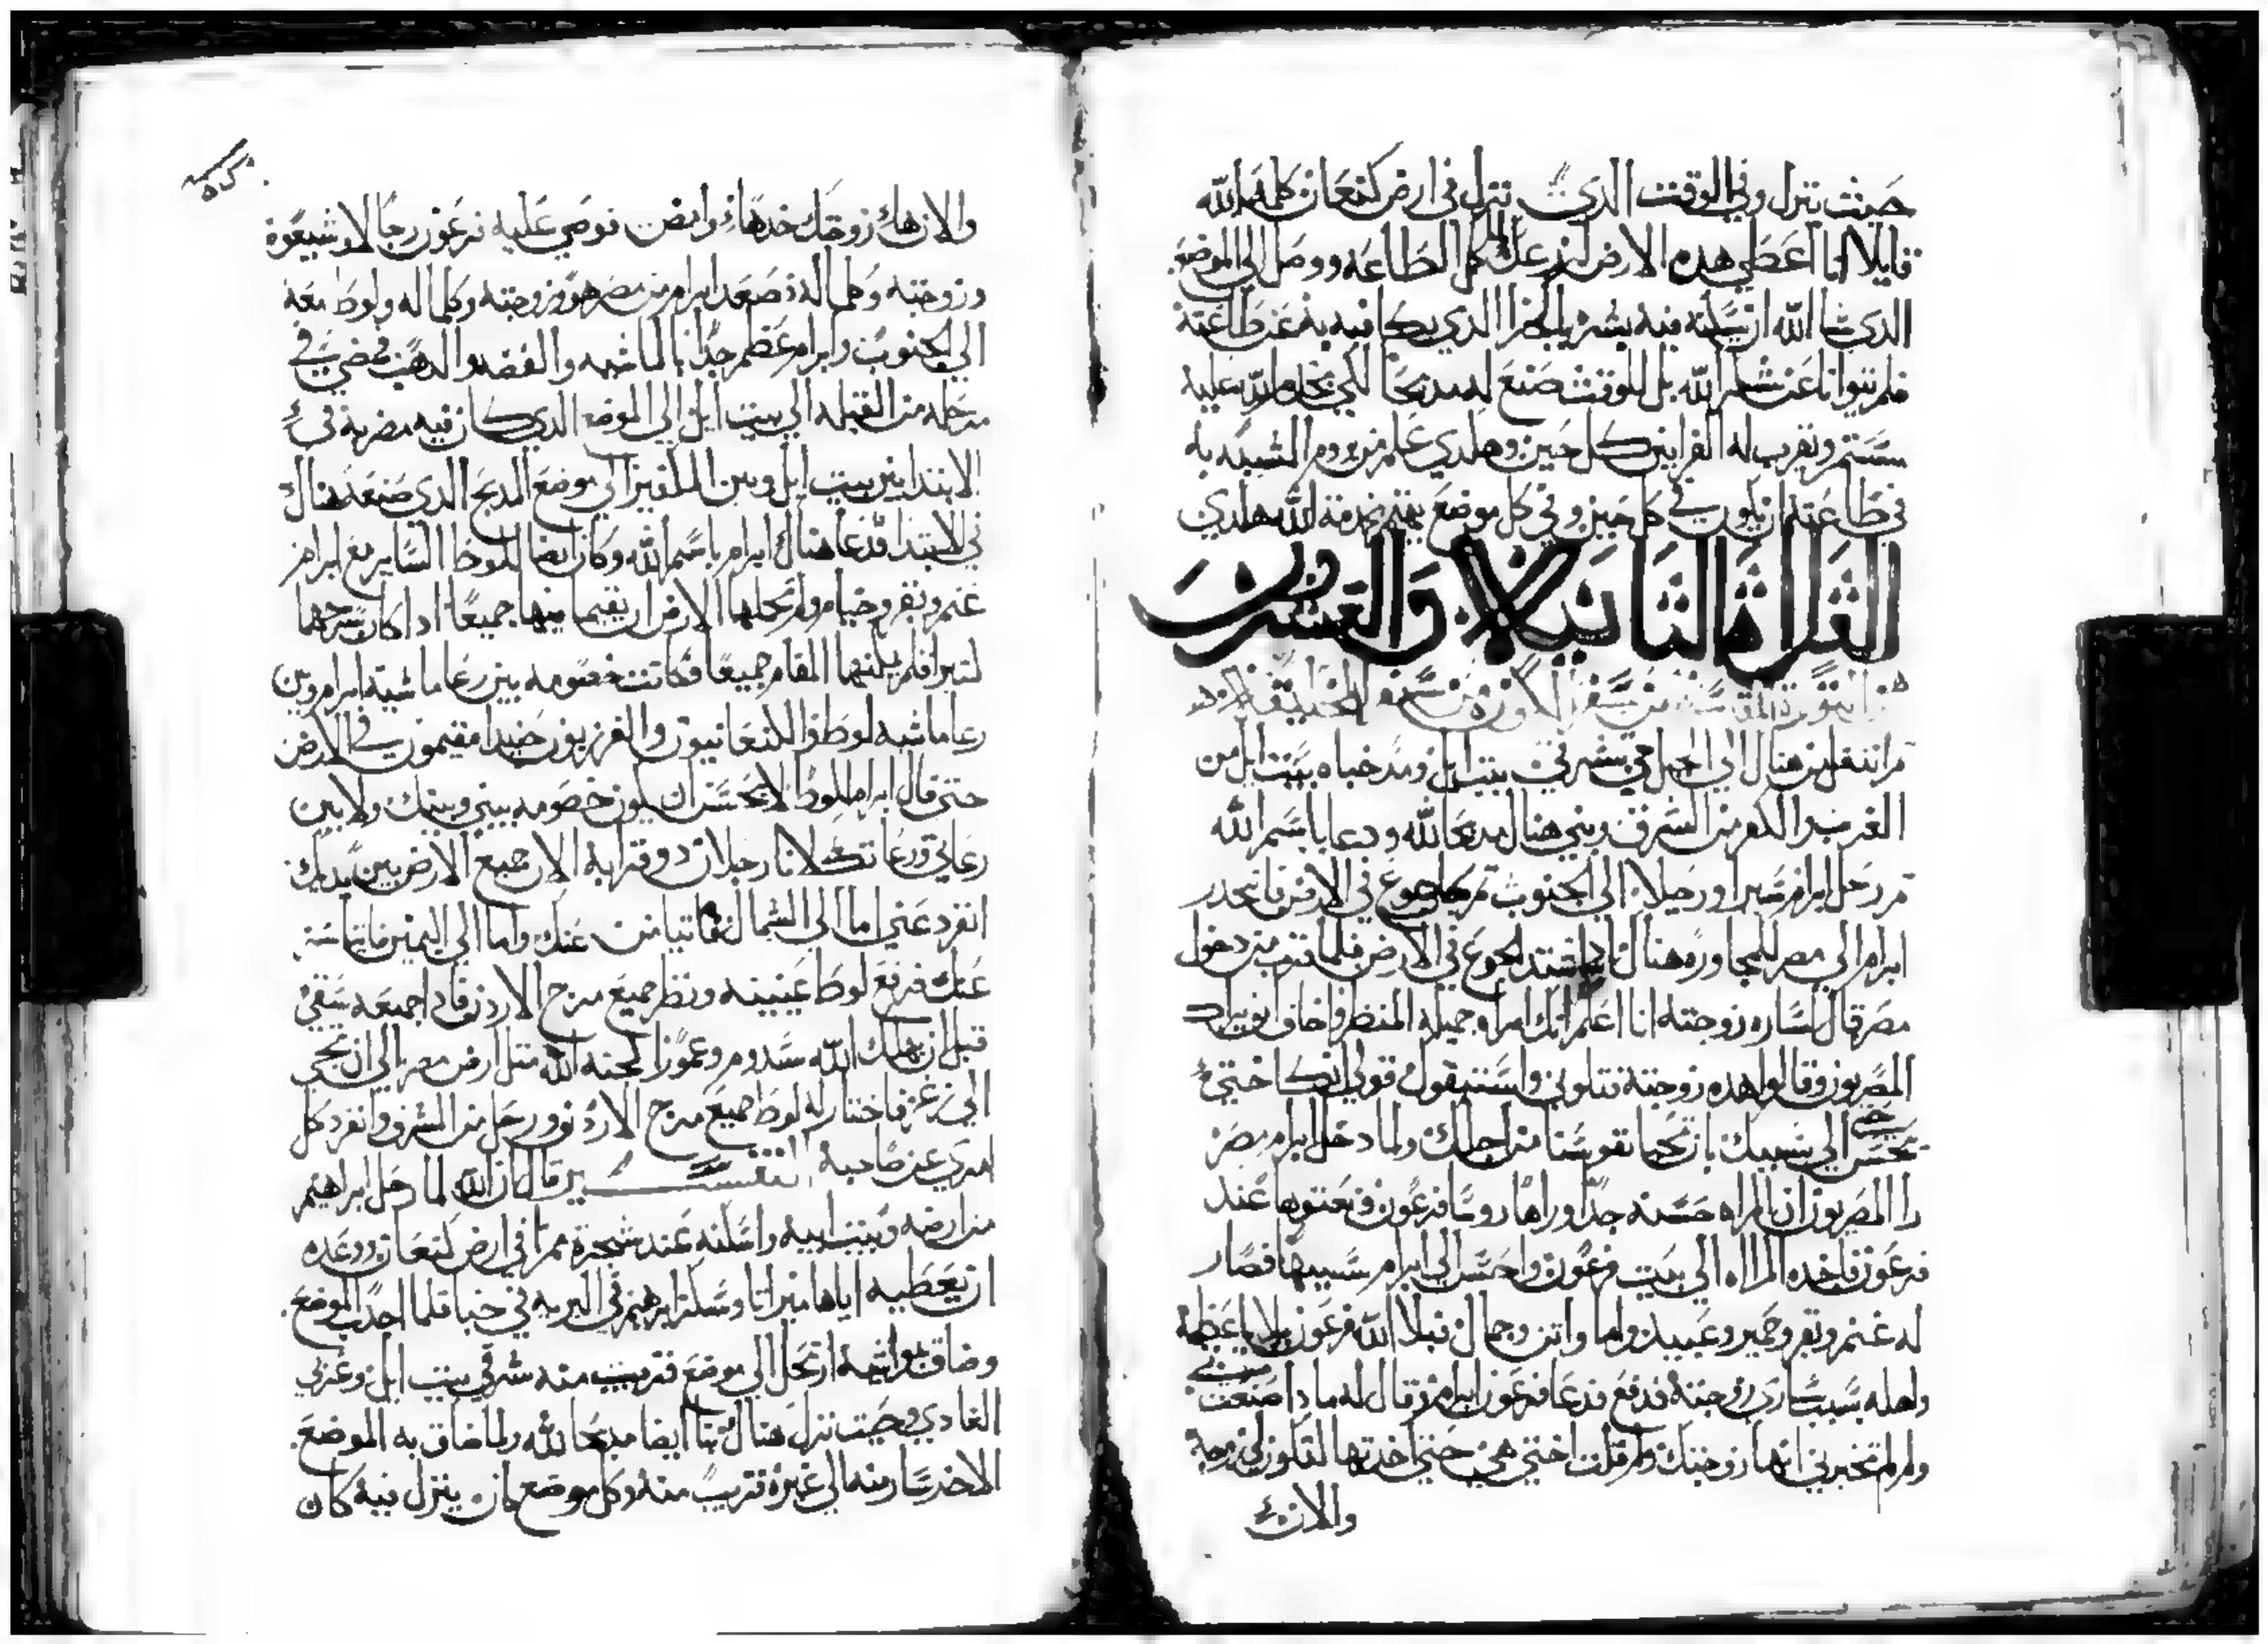 حيث ينزل وفي الوقت الذي نزل في ارض كنعان كلمه الله
قايلا انا اعطي هده الارض لزرعك كل الطاعه ووصل الي الموضع
الذي شا الله ان يسكنه فيه بشره بالجزا الذي يكافيه به عن طاعته
فلم يتوانا عن شكر الله بل للوقت صنع له مدبحا لكي الله عليه
ويقرب له القرابين كل حين وهكدي علم من يروم التشبه به
في طاعته ان يكون في كل حين وفي كل موضع يهتم بخدمة الله هكدي
القراة الثانية والعشرون
من التوراة المقدسة من سفر الاكوان من سفر الخليقة
ثم انتقل من هناك الي الجبل في شرقي بيت ايل ومد خباه بيت ايل من
الغرب والكو من الشرق وبني هناك مدبحا لله ودعا باسم الله
ثم رحل ابرام سيرا ورحيلا الي الجنوب ثم كان جوع في الارض فانحدر
ابرام الي مصر للمجاوره هناك اد اشتد الجوع في الارض فلما قرب من دخول
مصر قال لساره زوجته انا اعلم انك امراه جميلة المنظر واخاف ان يراك
المصريون وقالوا هده زوجته فتلوني واستبقوك قولي انك اختي
يحسن الي بسببك بان تحيا نفوسنا من اجلك ولما دخل ابرام مصر
را المصريون ان المراه حسنه جدا وراها روسا فرعون ونعتوها عند
فرعون فاخده المراه الي بيت فرعون واحسن الي ابرام بسببها فصار
له غنم وبقر وحمير وعبيد واما واتن وجمال فبلا الله فرعون بلايا عظيمة
واهله بسبب ساري زوجته فدعا فرعون ابرام وقال له ما دا صنعت
ولم لم تخبرني انها زوجتك ولم قلت اختي هي حتي اخدتها لتكون لي زوجة
والان
والان هاك زوجتك خدها وامض فوصي عليه فرعون رجالا وشيعوه
وزوجته وكلما له فصعد ابرام من مصر هو وزوجته وكلما له ولوط معه
الي الجنوب وابرام عظم جدا بالماشيه والفضه والدهب فمضي في
مرحله من القبله الي بيت ايل الي الموضع الدي كان فيه مضربه في
الابتدا بين بيت ايل وبين الي موضع المدبح الدي صنعه هناك
في الابتدا فدعا هناك ابرام باسم الله وكان ايضا للوط الساير مع ابرام
غنم وبقر وخيام ولم تحملها الارض ان يقيما فيها جميعا ادا كان سرحهما
كتيرا فلم يمكنهما المقام جميعا فكانت خصومه بين رعا ماشية ابرام وبين
رعا ماشيه لوط والكنعانيون والفرزيون حينيد مقيمون في الارض
حتي قال ابرام للوط لا يحسن ان يكون خصومه بيني وبينك ولا بين
رعاتي ورعاتك لانا رجلان دو قرابة الان جميع الارض بين يديك
انفرد عني اما الي الشمال فاتيامن عنك واما الي اليمين فاتياسر
عنك فرفع لوط عينيه ونظر جميع مرج الاردن فادا جميعه سقي
قبل ان يهلك الله سدوم وعمورا كجنة الله مثل ارض مصر الي ان تجي
الي زغر فاختار له لوط جميع مرج الاردن ورحل من المشرق وانفرد كل
امري عن صاحبه التفسير قال ان الله لما رحل ابراهيم
من ارضه وبيت ابيه واسكنه عند شجرة ممرا في ارض كنعان ووعده
ان يعطيه اياها ميراتا وسكن ابرهيم في البريه في خبا فلما اجدب الموضع
وضاق بمواشيه ارتحل الي موضع قريب منه شرقي بيت ايل وغربي
الغادي وحيث نزل هناك بنا ايضا مدبحا لله ولما ضاق به الموضع
الاخر سار منه الي غيره قريب منه وكل موضع كان ينزل فيه كان